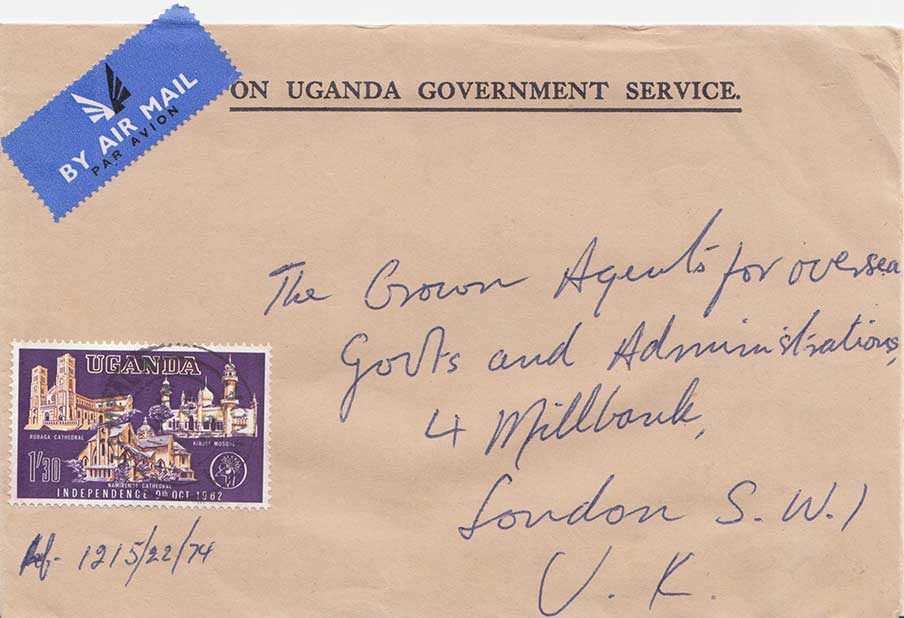 BY AIR MAIL
PAR AVION
ON UGANDA GOVERNMENT SERVICE.
The Crown Agents for oversea
Govts and Administrations,
4 Millbank,
London S.W.1
U.K.
UGANDA
RUBAGA CATHEDRAL
KIBULI MOSQUE
1/30
NAMIREMBE CATHEDRAL
INDEPENDENCE 9th OCT 1962
Ref- 1215/22/74